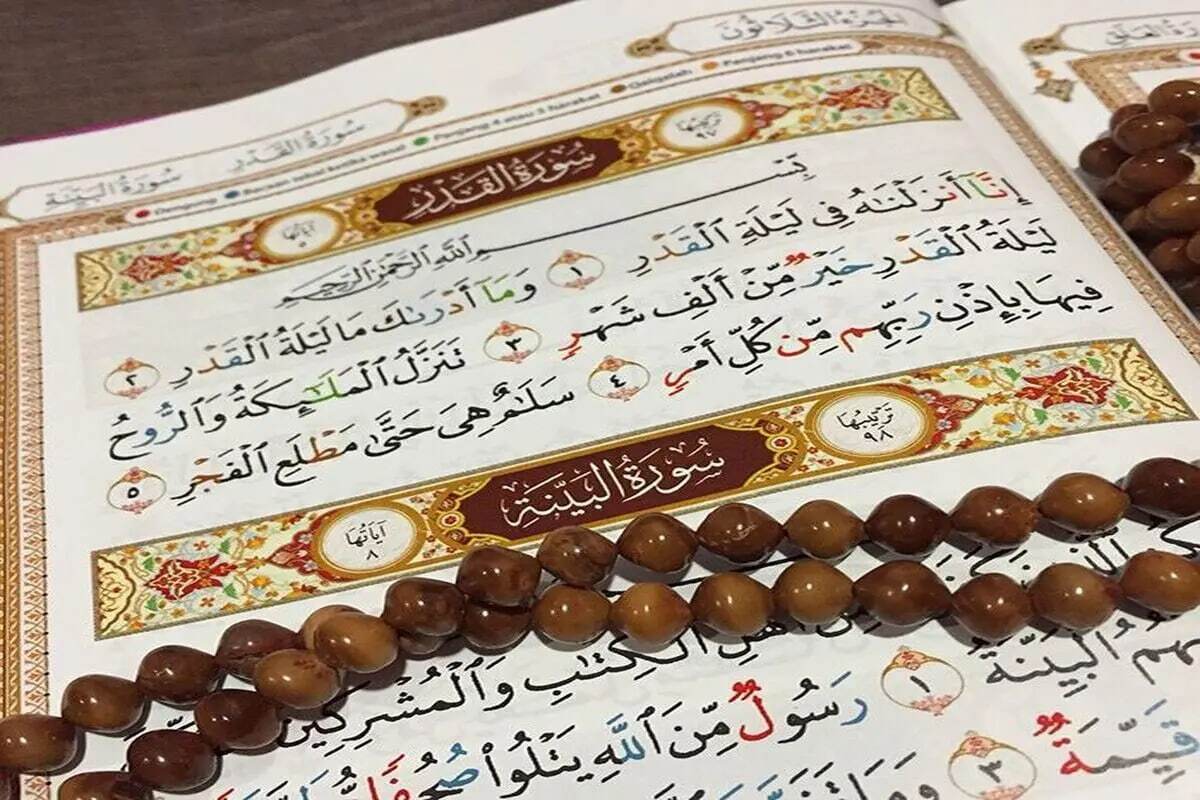 الجزء الثلاثون
سورة القدر
سورة البينة
Panjang 4 atau 5 harakat
Qalqalah
Panjang 6 harakat
سُورَةُ القَدْرِ
ترتيبها ٩٧
آياتها ٥
بِسْمِ ٱللَّهِ ٱلرَّحْمَٰنِ ٱلرَّحِيمِ
إِنَّآ أَنزَلْنَٰهُ فِى لَيْلَةِ ٱلْقَدْرِ ١ وَمَآ أَدْرَىٰكَ مَا لَيْلَةُ ٱلْقَدْرِ ٢
لَيْلَةُ ٱلْقَدْرِ خَيْرٌ مِّنْ أَلْفِ شَهْرٍ ٣ تَنَزَّلُ ٱلْمَلَٰٓئِكَةُ وَٱلرُّوحُ
فِيهَا بِإِذْنِ رَبِّهِم مِّن كُلِّ أَمْرٍ ٤ سَلَٰمٌ هِىَ حَتَّىٰ مَطْلَعِ ٱلْفَجْرِ ٥
سُورَةُ البَيِّنَةِ
ترتيبها ٩٨
آياتها ٨
ٱلْكِتَٰبِ وَٱلْمُشْرِكِينَ
ٱلْبَيِّنَةُ ١ رَسُولٌ مِّنَ ٱللَّهِ يَتْلُوا۟ صُحُفًا
قَيِّمَةٌ ٣ وَمَا